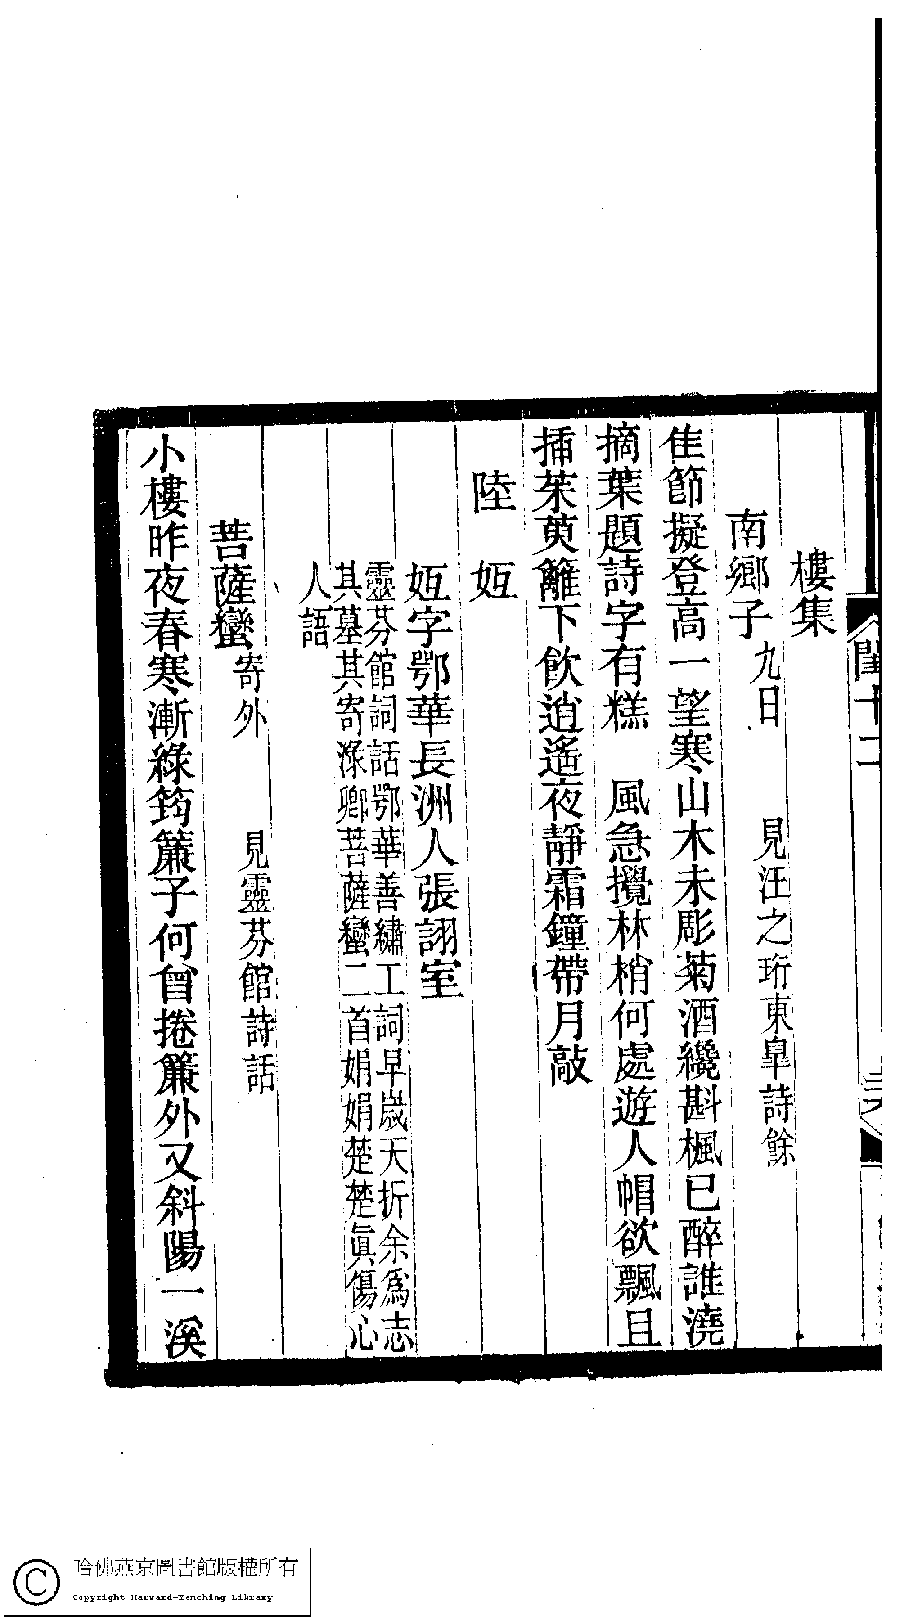 樓集
南鄉子九日　見汪之珩東臯詩餘
佳節擬登高一望寒山木未彫菊酒纔斟楓已醉誰澆
摘葉題詩字有糕　風急攪林梢何處遊人帽欲飄且
插茱萸籬下飲逍遙夜靜霜鐘帶月敲
陸姮
姮字鄂華長洲人張詡室
靈芬館詞話鄂華善繡工詞早歲夭折余爲志
其墓其寄淥卿菩薩蠻二首娟娟楚楚眞傷心
人語
菩薩蠻寄外　見靈芬館詩話
小樓昨夜春寒漸綠筠簾子何曾捲簾外又斜陽一溪
閨十二
哈佛燕京圖書館版權所有
Copyright Harvard-Yenching Library